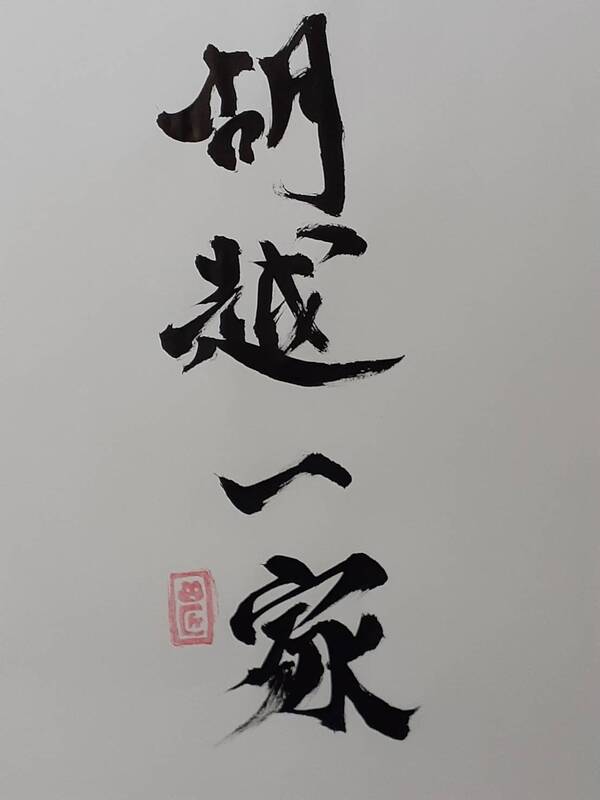 胡越一家